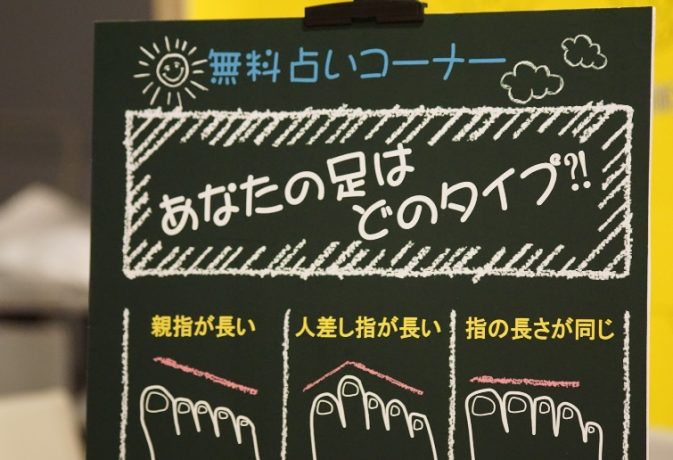 無料占いコーナー
あなたの足は
どのタイプ?!
親指が長い
人差し指が長い
指の長さが同じ